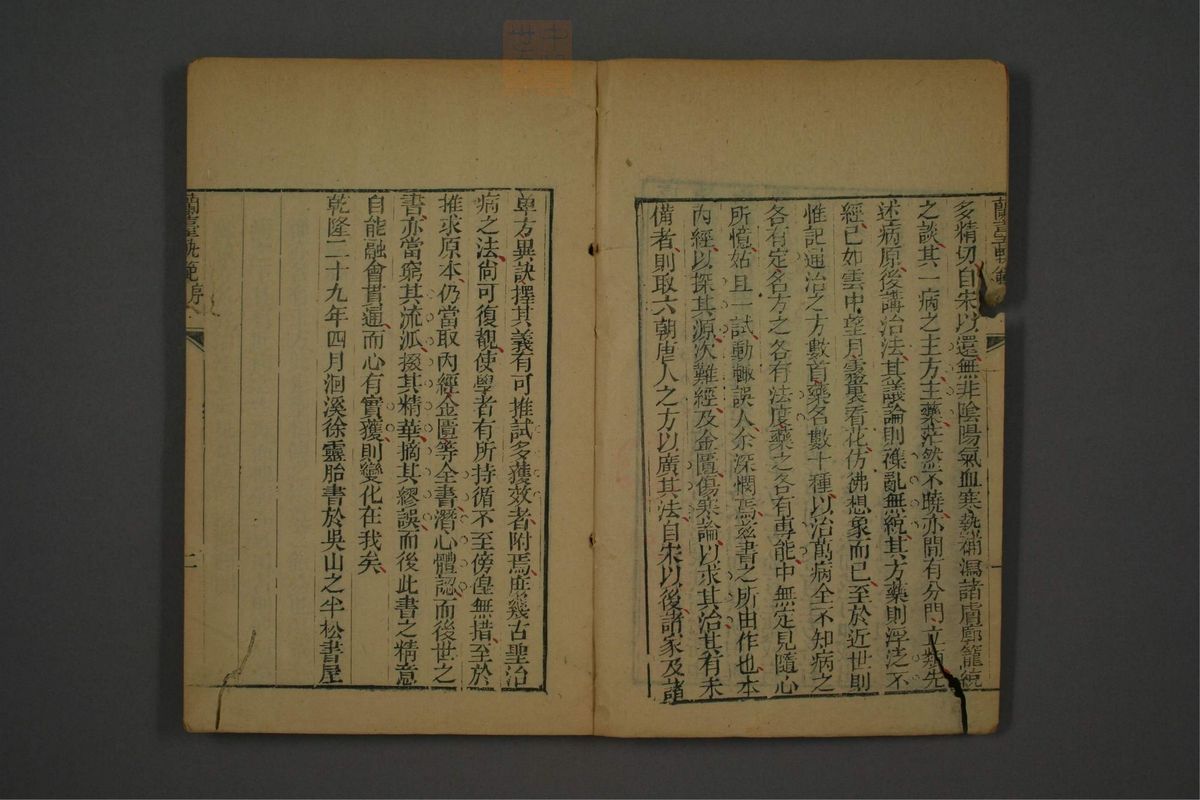 多精切自宋以還無非陰陽氣血寒熱補瀉諸膚廓籠統
之談其一病之主方主藥茫然不曉亦間有分門立類先
述病原後講治法其議論則雜亂無統其方藥則浮泛不
經已如雲中望月霧裏看花仿彿想象而已至於近世則
惟記通治之方數首藥名數十種以治萬病全不知病之
各有定名方之各有法度藥之各有專能中無定見隨心
所憶姑且一試動輒誤人余深憫焉茲書之所由作也本
內經以探其源次難經及金匱傷寒論以求其治其有未
備者則取六朝唐人之方以廣其法自宋以後諸家及諸
單方異訣擇其義有可推試多獲效者附焉庶幾古聖治
病之法尙可復覩使學者有所持循不至傍偟無措至於
推求原本仍當取內經金匱等全書潛心體認而後世之
書亦當窮其流泒掇其精華摘其繆誤而後此書之精意
自能融會貫通而心有實獲則變化在我矣
乾隆二十九年四月洄溪徐靈胎書於吳山之半松書屋
蘭臺軌範序
二